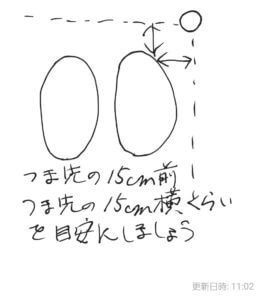 つま先の15cm前
つま先の15cm横くらい
を目安にしましょう
更新日時: 11:02